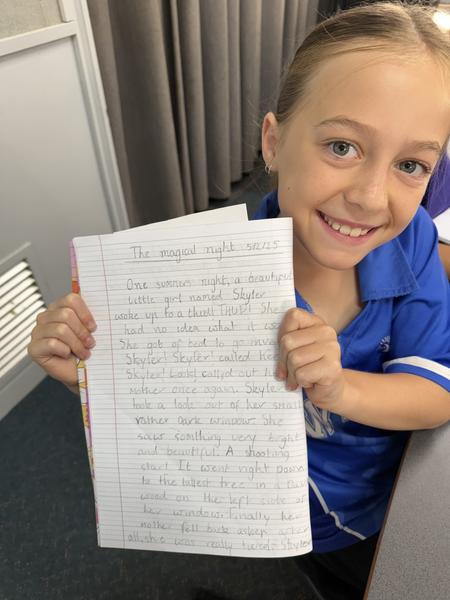 The magical night 5/12/25
One summers night, a beautiful
little girl named Skyler
woke up to a thud! THUD! She
had no idea what it
She got of bed to go inve
Skyler! Skyler! called her
Skyler! Look! callyd out h
mother once again. Skyler
took a look out of her small
rather dark window. She
saw somthing very bright
and beautiful. A shooting
star! It went right down
to the tallest tree in a Dark
wood on the left side of
her window. Finally her
mother fell back asleep after
all, she was really tuerd. Skyler